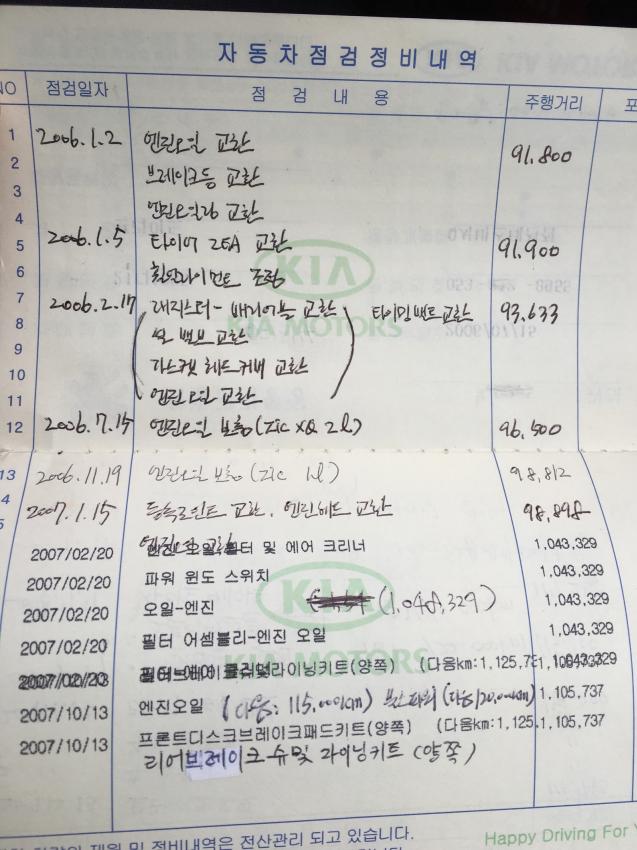 자동차점검정비내역
NO 점검일자 점 검 내 용 주행거리
1 2006.1.2 엔진오일 교환 91.800
2 브레이크등 교환
3
4 엔진오일 교환
5 2006.1.5 타이어 2EA 교환 91,900
6 휠얼라이먼트 조정
KIA
7 2006.2.17 교환 타이밍벨트교환 93.633
KIA MOTORS
8 교환
9
10 가스켓 헤드커버 교환
11 엔진오일 교환
12 2006.7.15 엔진오일 보충(Zic XQ 2l) 96,500
13 2006.11.19 엔진오일 보충(Zic 1l) 98,812
4 2007.1.15 등속조인트 교환. 엔진헤드 교환 98,898
5 교환
2007/02/20 엔진오일필터 및 에어 크리너 1,043,329
2007/02/20 파워 윈도 스위치 1,043,329
2007/02/20 오일-엔진 (1,048,329) 1,043,329
KIA
2007/02/20 필터 어셈블리-엔진 오일 1,043,329
라이닝키트(양쪽) (다음km:1,125,7
2007/10/13 엔진오일 (다음: 115,000km) 1,105,737
2007/10/13 프론트디스크브레이크패드키트(양쪽) (다음km:1,125, 1,105,737
리어브레이크 슈및 라이닝키트 (양쪽)
제원 및 정비내역은 전산관리 되고 있습니다.
Happy Driving For